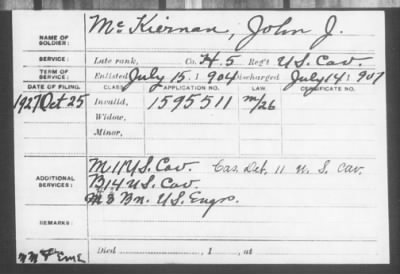 NAME OF SOLDIER: McKiernan, John J.
SERVICE: Late rank, Co. H. 5 Reg't U.S. Cav.
TERM OF SERVICE: Enlisted July 15, 1904 Discharged July 14, 1907
DATE OF FILING. CLASS. APPLICATION NO. LAW. CERTIFICATE NO.
1927 Oct 25 Invalid, 1595511 m/26
Widow,
Minor,
ADDITIONAL SERVICES: M 11 U.S. Cav. Cas. Det. 11 U. S. Cav.
B 14 U.S. Cav.
M 3 Bn. U.S. Engrs.
REMARKS:
Died , 1 , at